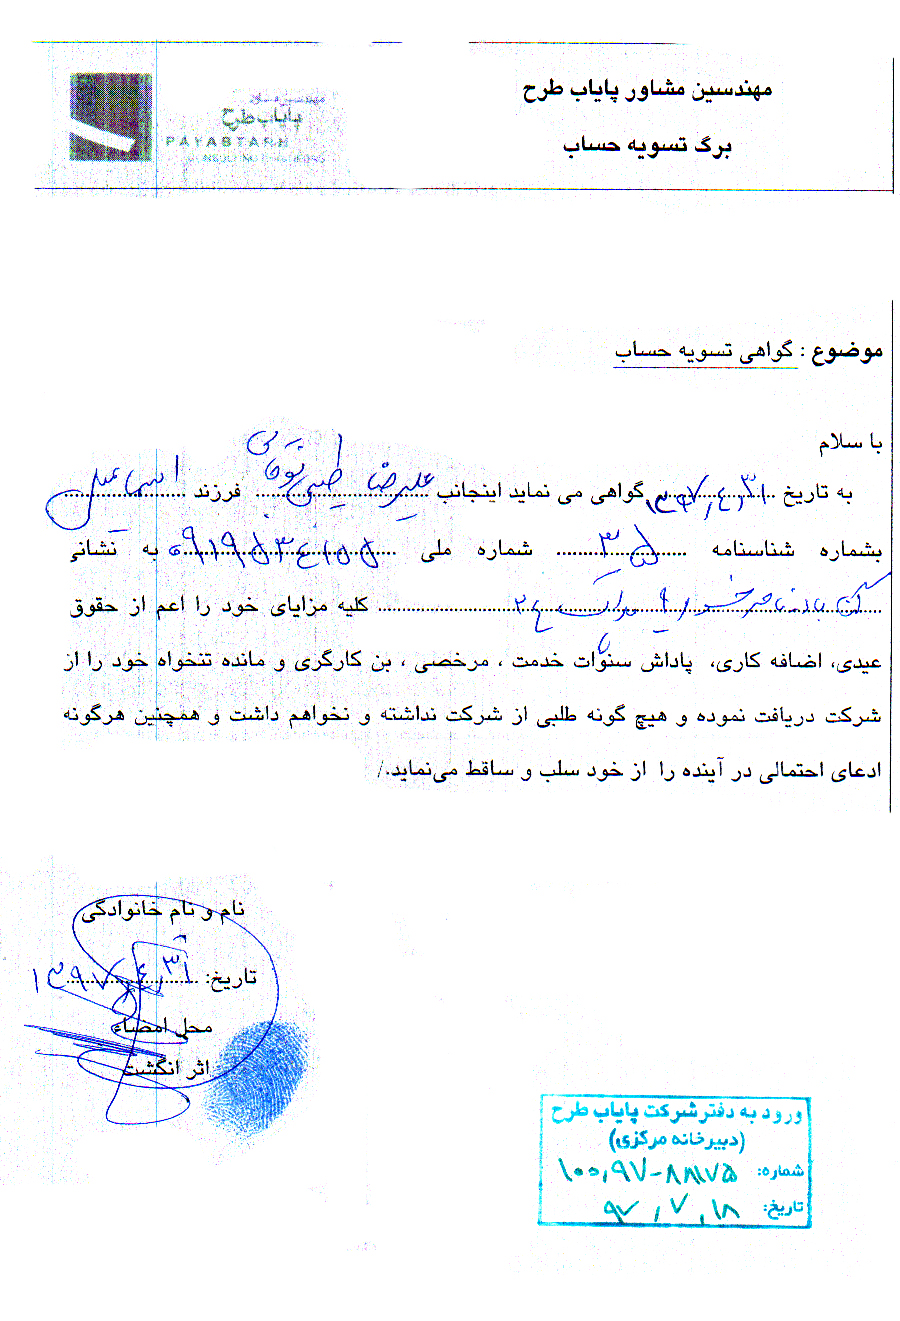 مهندسین مشاور پایاب طرح
برگ تسویه حساب
مهندسین مشاور
پایاب طرح
PAYABTARH
CONSULTING ENGINEERS
موضوع : گواهی تسویه حساب
با سلام
به تاریخ ۱۳۹۷٫۴٫۳۱ گواهی می نماید اینجانب علیرضا فرزند اسماعیل
بشماره شناسنامه ۳۵ شماره ملی ۰۹۱۹۵۳۴۱۵۵ به نشانی
کلیه مزایای خود را اعم از حقوق
عیدی، اضافه کاری، پاداش سنوات خدمت ، مرخصی ، بن کارگری و مانده تنخواه خود را از
شرکت دریافت نموده و هیچ گونه طلبی از شرکت نداشته و نخواهم داشت و همچنین هرگونه
ادعای احتمالی در آینده را از خود سلب و ساقط می‌نماید./
نام و نام خانوادگی
تاریخ: ۱۳۹۷٫۴٫۳۱
محل امضاء
اثر انگشت
ورود به دفتر شرکت پایاب طرح
(دبیرخانه مرکزی)
شماره: ۱۰۰٫۹۷-۸۸۱۷۵
تاریخ: ۹۷٫۷٫۱۸